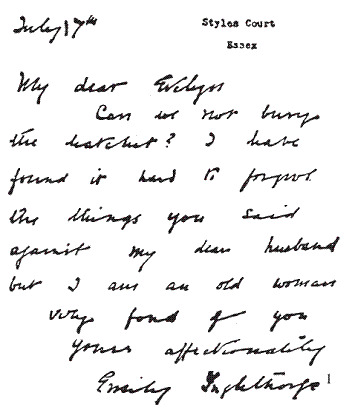 July 17th
Styles Court
Essex
My dear Evelyn
Can we not bury
the hatchet? I have
found it hard to forgive
the things you said
against my dear husband
but I am an old woman
very fond of you
Yours affectionately
Emily Inglethorpe